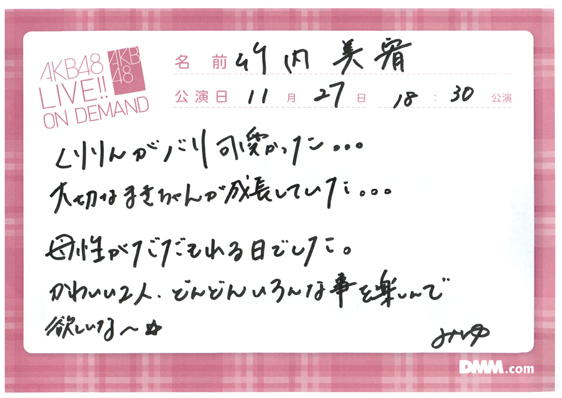 AKB48
LIVE!!
ON DEMAND
AKB
48
名 前 竹内 美宥
公演日 11 月 27 日 18 : 30 公演
くりりんがバリ可愛かった...
大切なまきちゃんが成長していた...
母性がだだもれる日でした。
かわいい2人、どんどんいろんな事を楽しんで
欲しいな〜☆
みゆ
DMM.com